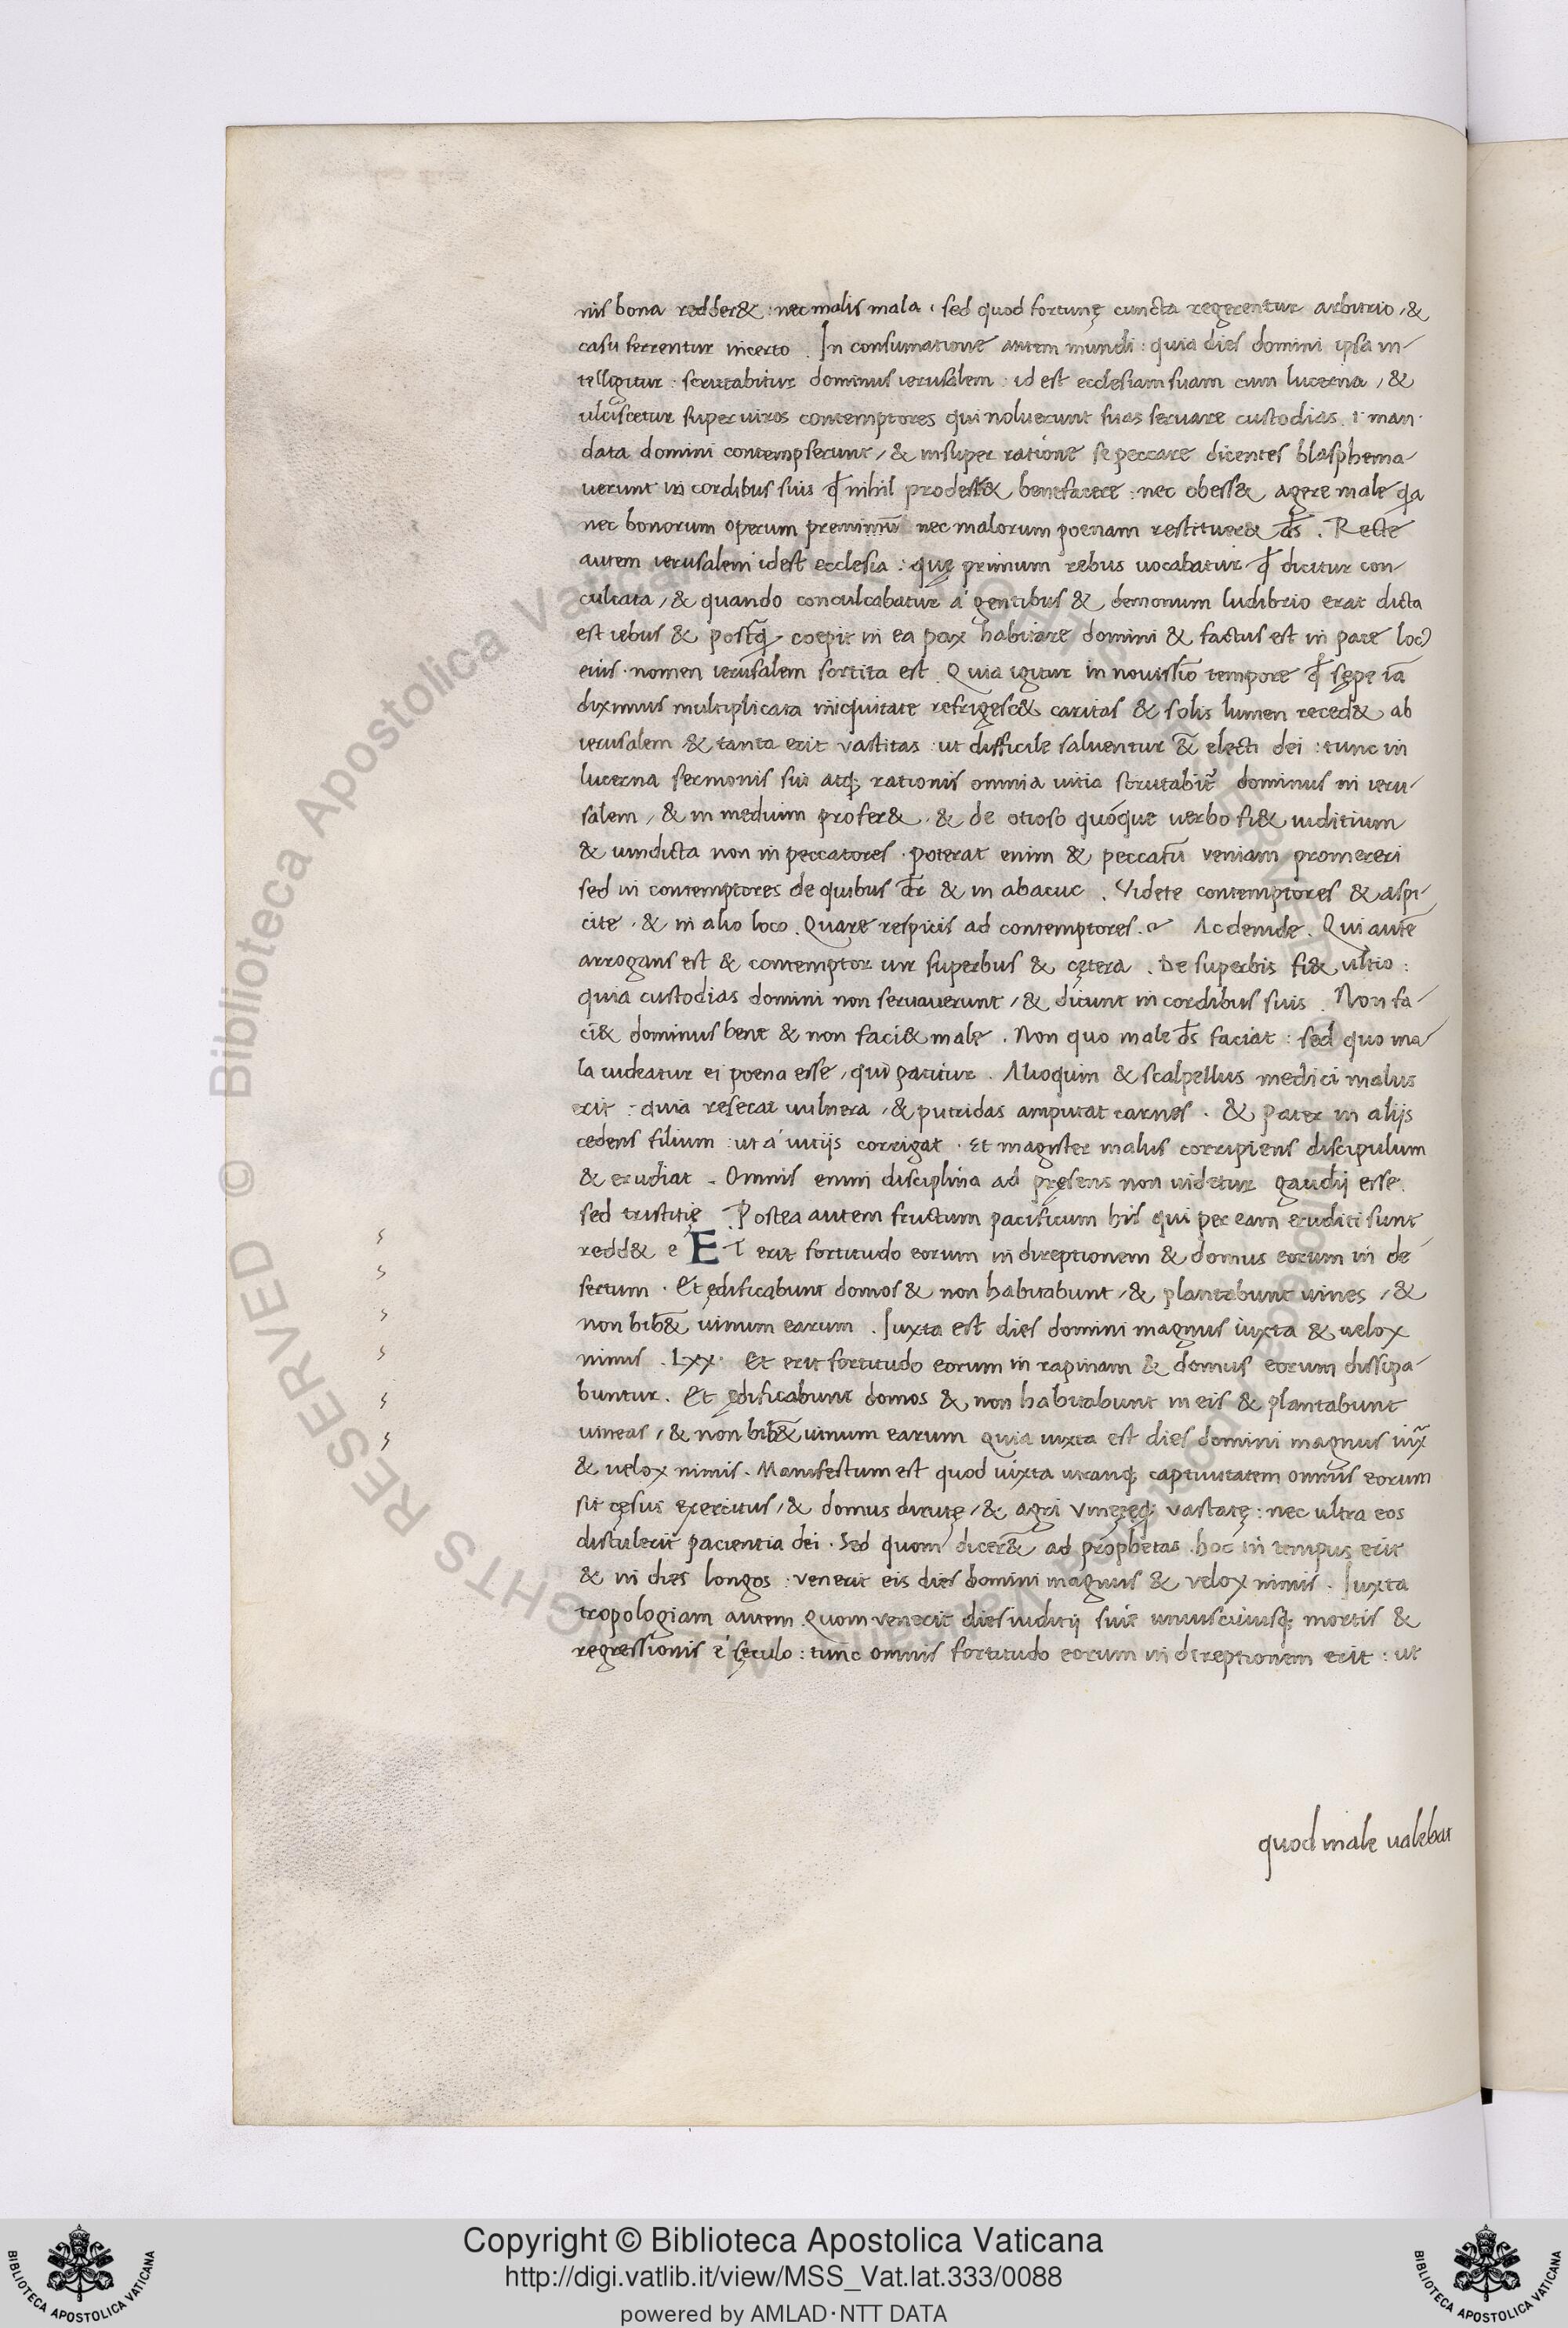 nis bona redder& : nec malis mala . sed quod fortunę cuncta regerentur arbitrio , &
casu ferrentur incerto . In consumatione autem mundi : quia dies domini ipsa in-
tellgitur : scrutabitur dominus ierusalem : id est ecclesiam suam cum lucerna , &
ulciscetur super uiros contemptores qui noluerunt suas seruare custodias . i man-
data domini contempserunt , & insuper ratione se peccare dicentes blasphema-
uerunt in cordibus suis qđ nihil prodess& benefacere : nec obess& agere male qa
nec bonorum operum premiū nec malorum poenam restituer& ds̄ . Recte
autem ierusalem id est ecclesia : quę primum iebus uocabatur qđ dicitur con-
culcata , & quando conculcabatur á gentibus & demonum ludibrio erat dicta
est iebus & postq̄ coepit in ea pax habitare domini & factus est in pace loc9
eius . nomen ierusalem sortita est . Quia igitur in nouissīo tempore qđ sępe iā
diximus multiplicata iniquitate refrigesc& caritas & solis lumen reced& ab
ierusalem & tanta erit vastitas : ut difficile saluentur &̄ electi dei : tunc in
lucerna sermonis sui atq; rationis omnia uitia scrutabit᷑ dominus in ieru-
salem , & in medium profer& . & de otioso quóque uerbo fi& iuditium
& uindicta non in peccatores . poterat enim & peccatū veniam promereri
sed in contemptores de quibus dr̄ & in abacuc . Videte contemptores & aspi-
cite . & in alio loco . Quare respicis ad contemptores . Ac deinde . Qui autē
arrogans est & contemptor uir superbus & cętera . De superbis fi& ultio :
quia custodias domini non seruauerunt , & dicunt in cordibus suis . Non fa-
ci& dominus bene & non faci& male . Non quo male ds̄ faciat : sed quo ma-
la uideatur ei poena esse , qui patitur . Alioquin & scalpellus medici malus
erit : quia resecat uulnera , & putridas amputat carnes . & pater in aliis
cedens filium : ut á uitijs corrigat . Et magister malus corripiens discipulum
& erudiat . Omnis enim disciplina ad pręsens non uidetur gaudij esse
sed tristitię . Postea autem fructum pacificum his qui per eam eruditi sunt
redd& e ET erit fortitudo eorum in direptionem & domus eorum in de
sertum . Et ędificabunt domos & non habitabunt , & plantabunt uines , &
non bib& uinum earum . Iuxta est dies domini magnus iuxta & uelox
nimis . Lxx . Et erit fortitudo eorum in rapinam & domus eorum dissipa-
buntur . Et ędificabunt domos & non habitabunt in eis & plantabunt
uineas , & non bib& uinum earum Quia iuxta est dies domini magnus iux̄
& uelox nimis . Manifestum est quod iuxta utranq; captiuitatem omnis eorum
sit cęsus exercitus , & domus dirutę , & agri vinęęq; vastatę : nec ultra eos
distulerit pacientia dei . Sed quom dicer& ad prophetas . hoc in tempus erit
& in dies longos : venerit eis dies domini magnus & velox nimis . Iuxta
tropologiam autem . Quom venerit dies iuditij siue uniuscuiusq; mortis &
regressionis é sęculo : tunc omnis fortitudo eorum in direptionem erit : ut
quod male ualebat
© Biblioteca Apostolica Vaticana
ALL RIGHTS RESERVED
Copyright © Biblioteca Apostolica Vaticana
http://digi.vatlib.it/view/MSS_Vat.lat.333/0088
powered by AMLAD·NTT DATA
BIBLIOTECA APOSTOLICA VATICANA
BIBLIOTECA APOSTOLICA VATICANA